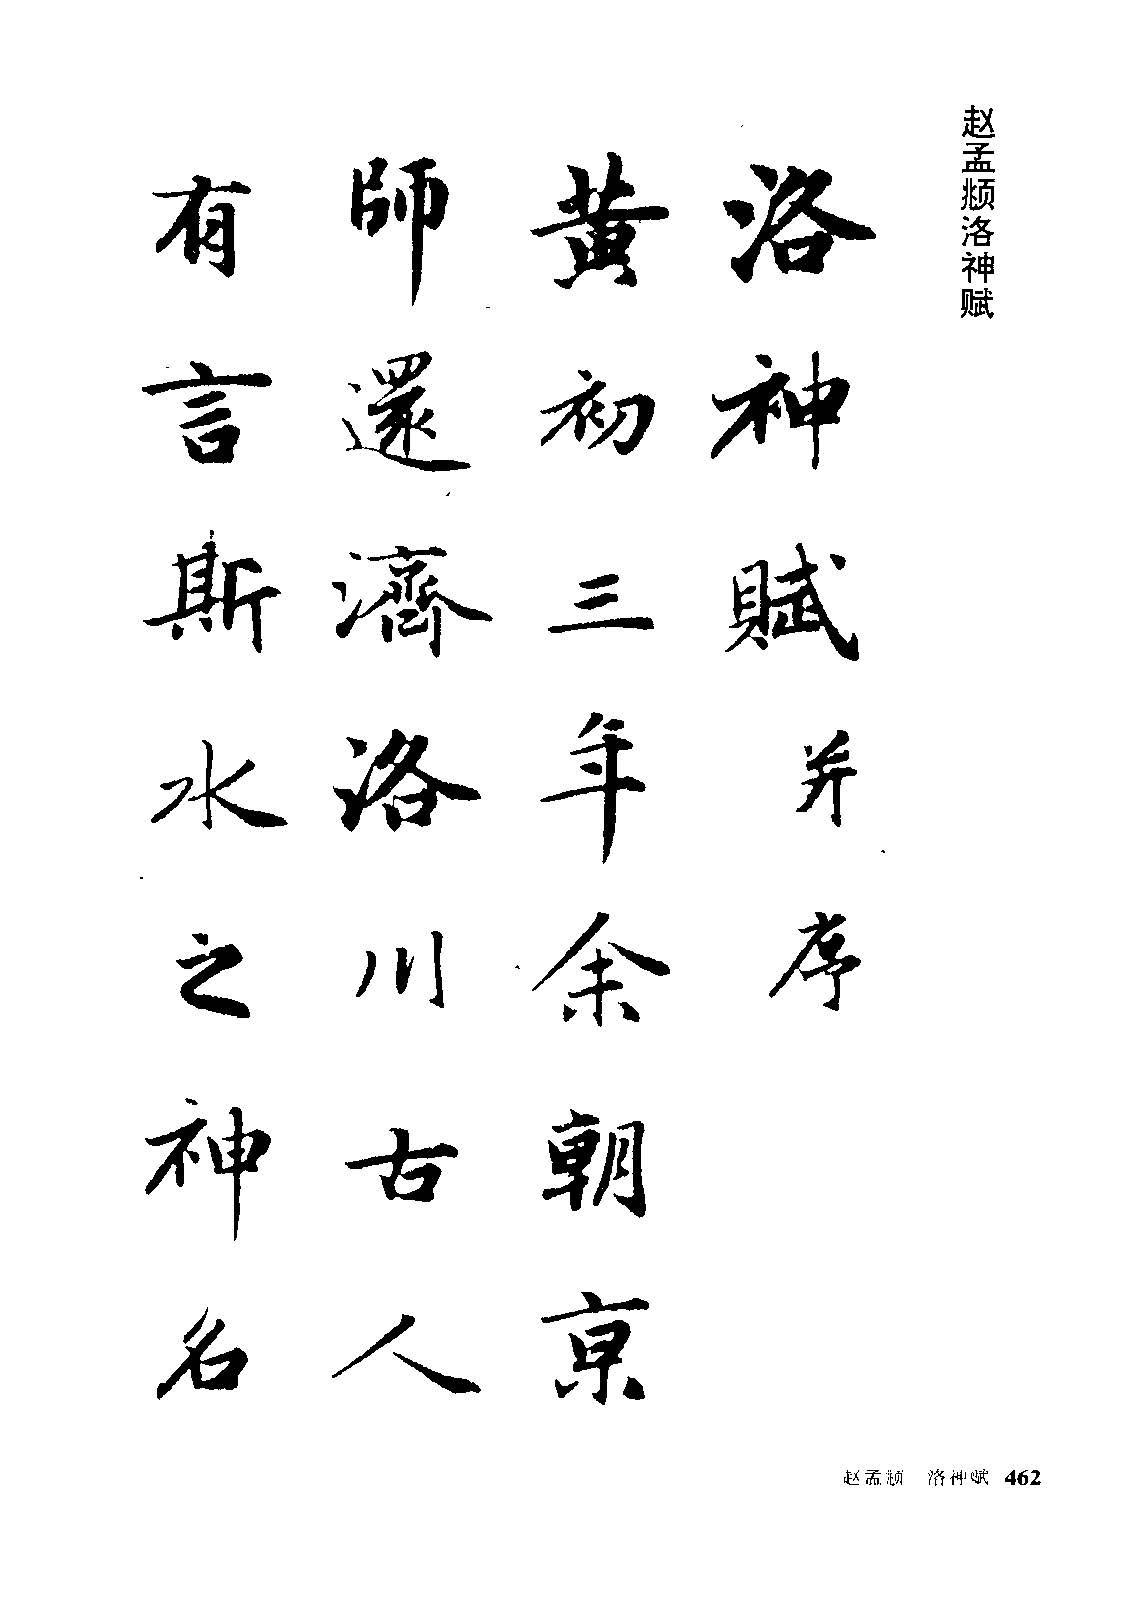 赵孟頫洛神赋
洛神賦并序
黄初三年余朝京
師還濟洛川古人
有言斯水之神名
赵孟頫 洛神赋 462